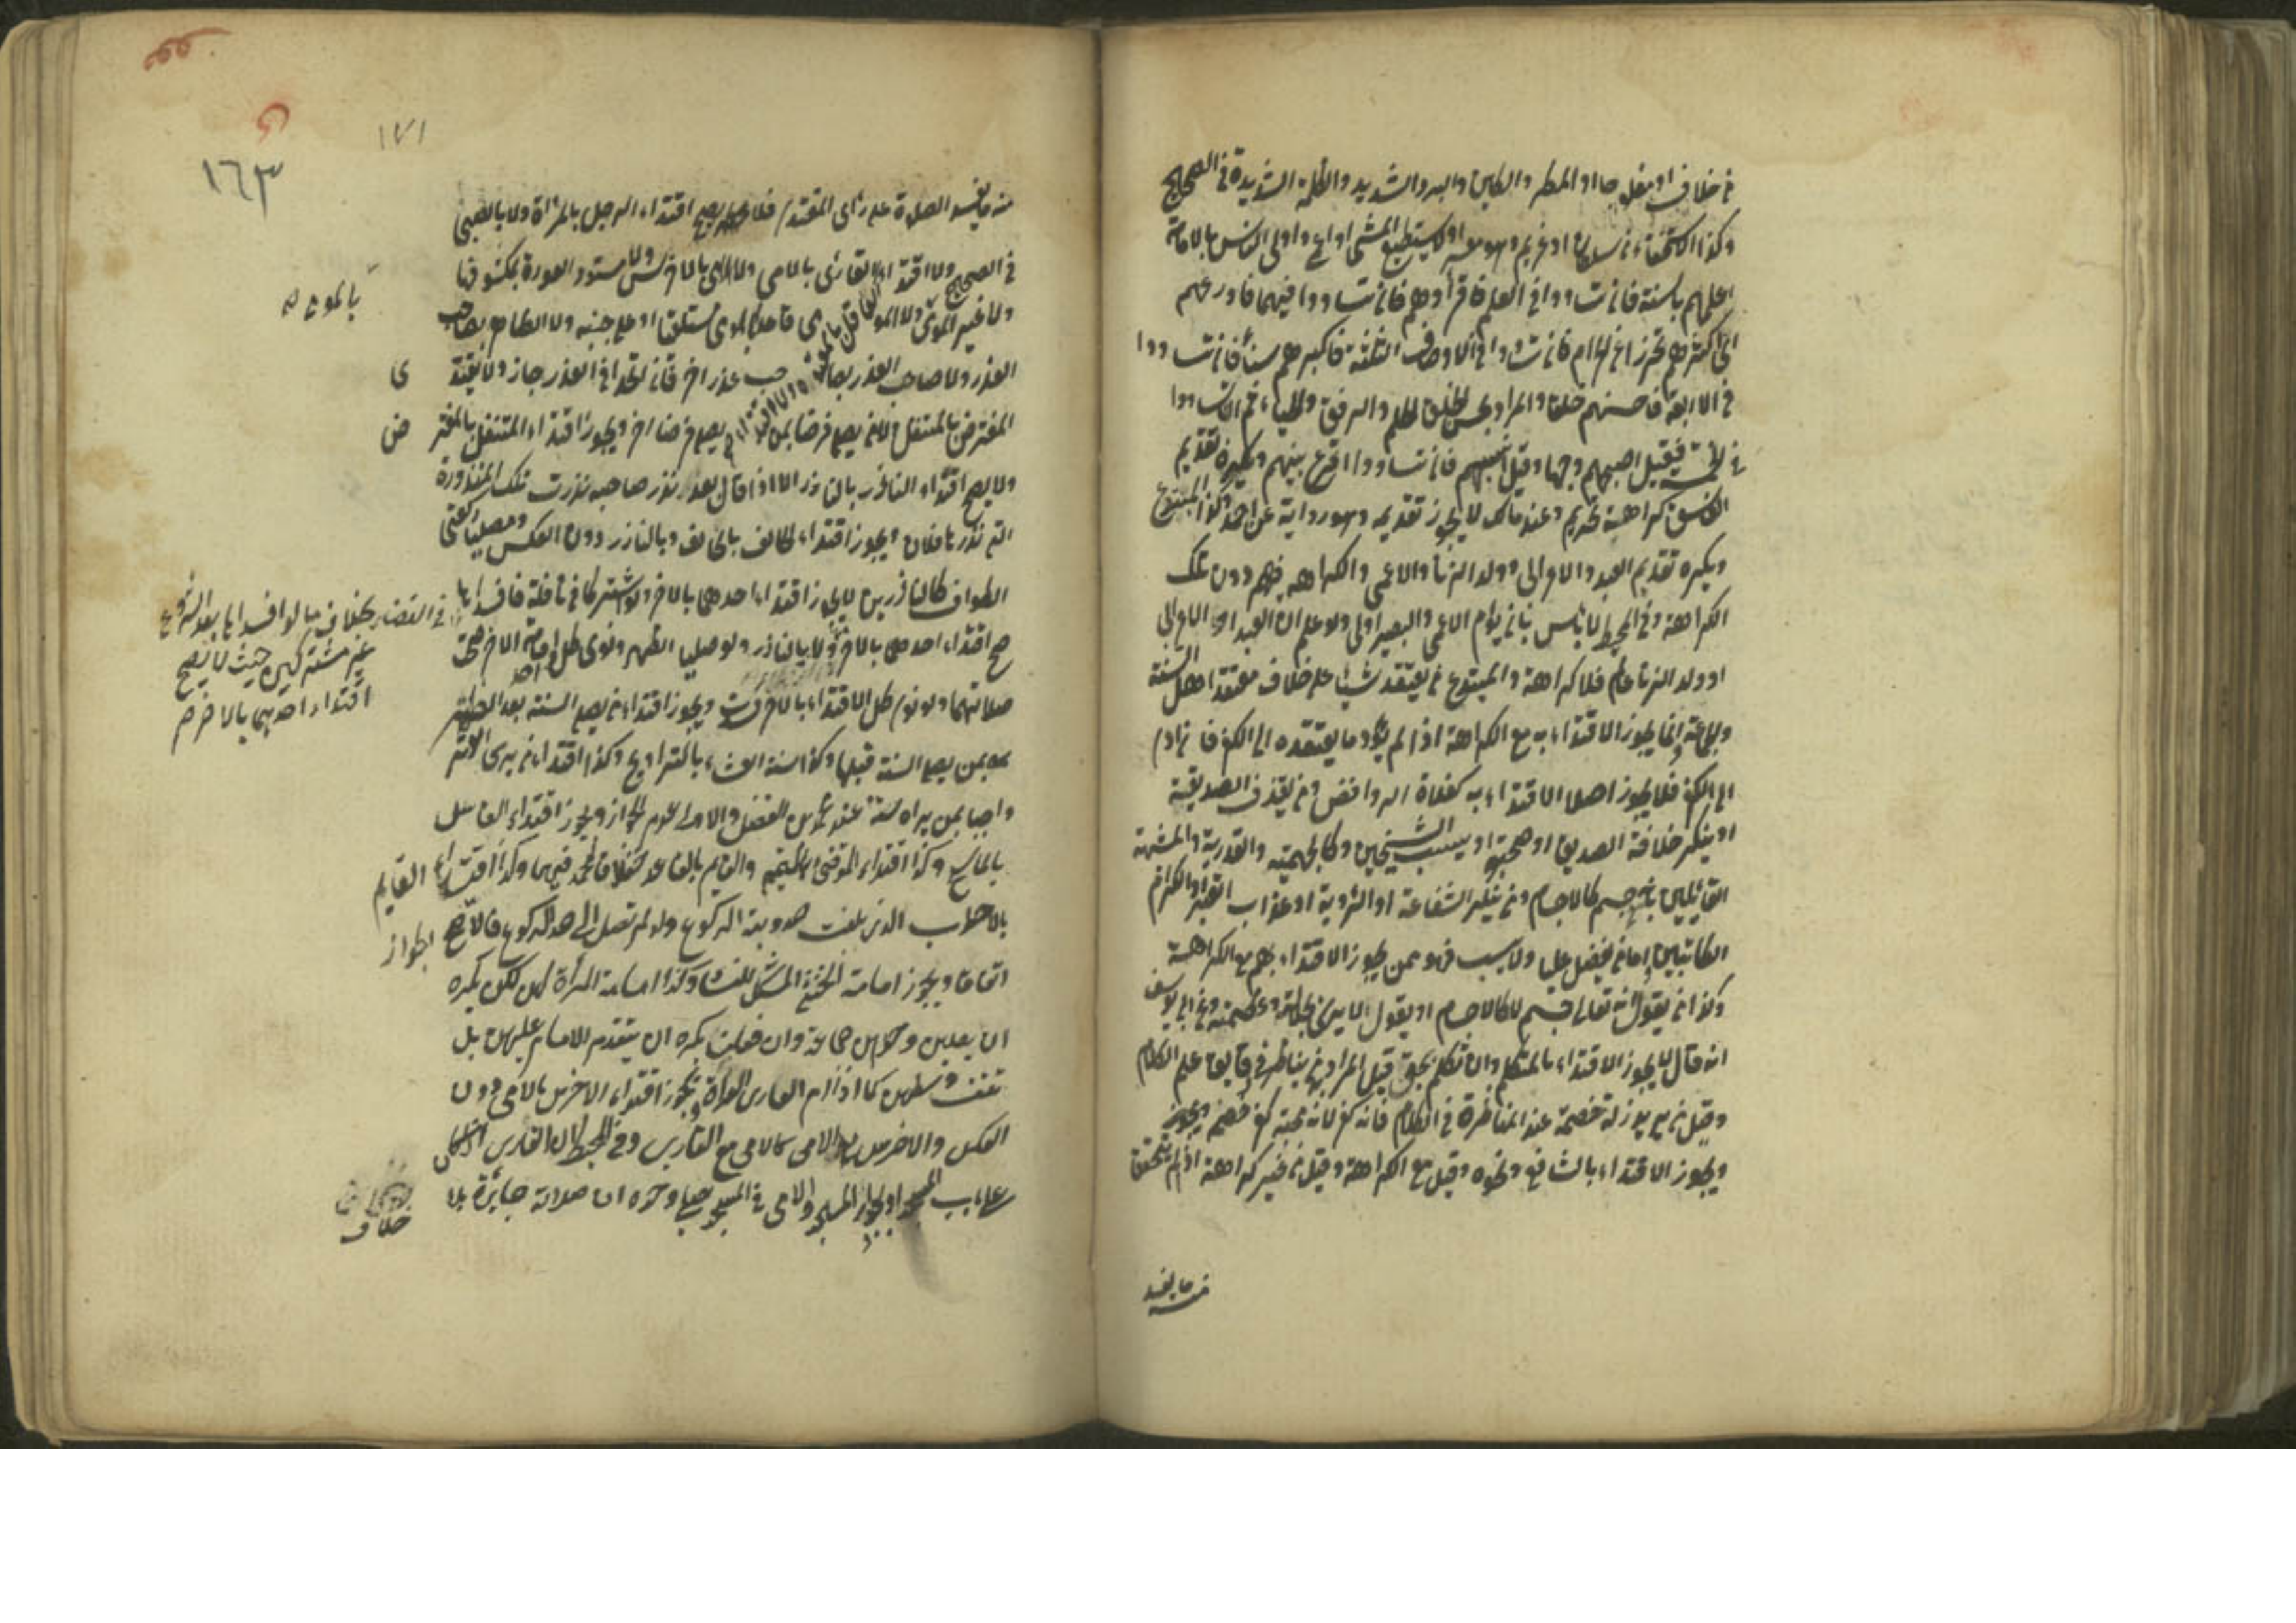 من خلاف او مفلوجا او المطر والطين والبرد الشديد والظلمة الشديدة في الصحيح
وكذا من سلطان او غريم وهو معسر او لا يستطيع المشي او اعمى واولى الناس بالامامة
اعلمهم بالسنة فان تساووا في العلم فاقرأوهم فان تساووا فيهما فاورعهم
اي اكثرهم تحرزا عن الحرام فان تساووا في الاوصاف الثلثة فاكبرهم سنا فان تساووا
في الاربعة فاحسنهم خلقا والمراد بحسن الخلق الحلم والرفق والحياء فان تساووا
في الخمسة فقيل اصبحهم وجها وقيل انسبهم فان تساووا اقرع بينهم ويكره تقديم
الفاسق كراهة تحريم وعند مالك لا يجوز تقديمه وهو رواية عن احمد وكذا المبتدع
ويكره تقديم العبد والاعرابي وولد الزنا والاعمى والكراهة فيهم دون تلك
الكراهة وفي المحيط لا بأس بان يؤم الاعمى والبصير اولى ولو علم ان العبد او الاعرابي
او ولد الزنا عالم فلا كراهة والمبتدع من يعتقد شيئا على خلاف معتقد اهل السنة
والجماعة وانما يجوز الاقتداء به مع الكراهة اذا لم يؤد ما يعتقده الى الكفر فان ادى
الى الكفر فلا يجوز اصلا الاقتداء به كغلاة الروافض ومن يقذف الصديقة
او ينكر خلافة الصديق او صحبته او يسب الشيخين وكالجهمية والقدرية والمشبهة
القائلين بانه جسم كالاجسام ومن ينكر الشفاعة او الرؤية او عذاب القبر او الكرام
الكاتبين اما من يفضل عليا ولا يسب فهو ممن يجوز الاقتداء بهم مع الكراهة
وكذا من يقول انه تعالى جسم لا كالاجسام او يقول لا يرى لجلاله وعظمته وعن ابي يوسف
انه قال لا يجوز الاقتداء بالمتكلم وان تكلم بحق قيل المراد به من يناظر في دقايق علم الكلام
وقيل من يريد زلة خصمه عند المناظرة في الكلام فانه كفر لانه محبة كفر خصمه
ويجوز الاقتداء بالشافعي ونحوه وقيل مع الكراهة وقيل من غير كراهة اذا لم يتحقق
منه ما يفسد
١٧١
١٦٣
منه ما يفسد الصلوة على رأى المقتدى فلا يصح اقتداء الرجل بالمرأة ولا بالصبي
في الصحيح ولا اقتداء القارئ بالامي ولا الامي بالاخرس ولا مستور العورة بمكشوفها
ولا غير المومئ بالمومئ ولا المومى قاعدا بالمومى مستلقيا او على جنبه ولا الطاهر بصاحب
العذر ولا صاحب العذر بصاحب عذر اخر فان اتحدا في العذر جاز ولا يقتدى
المفترض بالمتنفل ولا من يصلي فرضا بمن يصلي فرضا اخر ويجوز اقتداء المتنفل بالمفترض
ولا يصح اقتداء الناذر بالناذر الا اذا قال بعد نذر صاحبه نذرت تلك المنذورة
التي نذرها فلان ويجوز اقتداء الحالف بالحالف وبالناذر دون العكس ومصليا ركعتي
الطواف كالناذرين لا يجوز اقتداء احدهما بالاخر ولو اشتركا في نافلة فافسداها
صح اقتداء احدهما بالاخر لا بالناذر ولو صليا الظهر ونوى كل امامة الاخر صحت
صلاتهما ولو نوى كل الاقتداء بالاخر فسدت ويجوز اقتداء من يصلي السنة بعد الظهر
بمن يصلي السنة قبلها وكذا سنة العشاء بالتراويح وكذا اقتداء من يرى الوتر
واجبا بمن يراه سنة عند محمد بن الفضل والاولى عدم الجواز ويجوز اقتداء الغاسل
بالماسح وكذا اقتداء المتوضئ بالمتيمم والقايم بالقاعد خلافا لمحمد فيهما وكذا اقتداء القايم
بالاحدب الذي بلغت حدوبته الركوع ولو لم تصل الى حد الركوع فالاصح الجواز
اتفاقا ويجوز امامة الخنثى المشكل للنساء وكذا امامة المرأة لهن لكن يكره
ان يصلين وحدهن جماعة وان فعلن يكره ان يتقدم الامام عليهن بل
تقف وسطهن كما اذا ام العارى العراة ويجوز اقتداء الاخرس بالامي دون
العكس والاخرس والامى كالامي مع القارى وفي المحيط ان القارى اذا كان
على باب المسجد او بجوار المسجد والامي في المسجد يصلي وحده ان صلاته جايزة بلا
خلاف
بالمومئ
ى
ض
في القضاء بخلاف ما لو افسداها بعد الشروع
غير مشتركين حيث لا يصح
اقتداء احدهما بالاخر صح